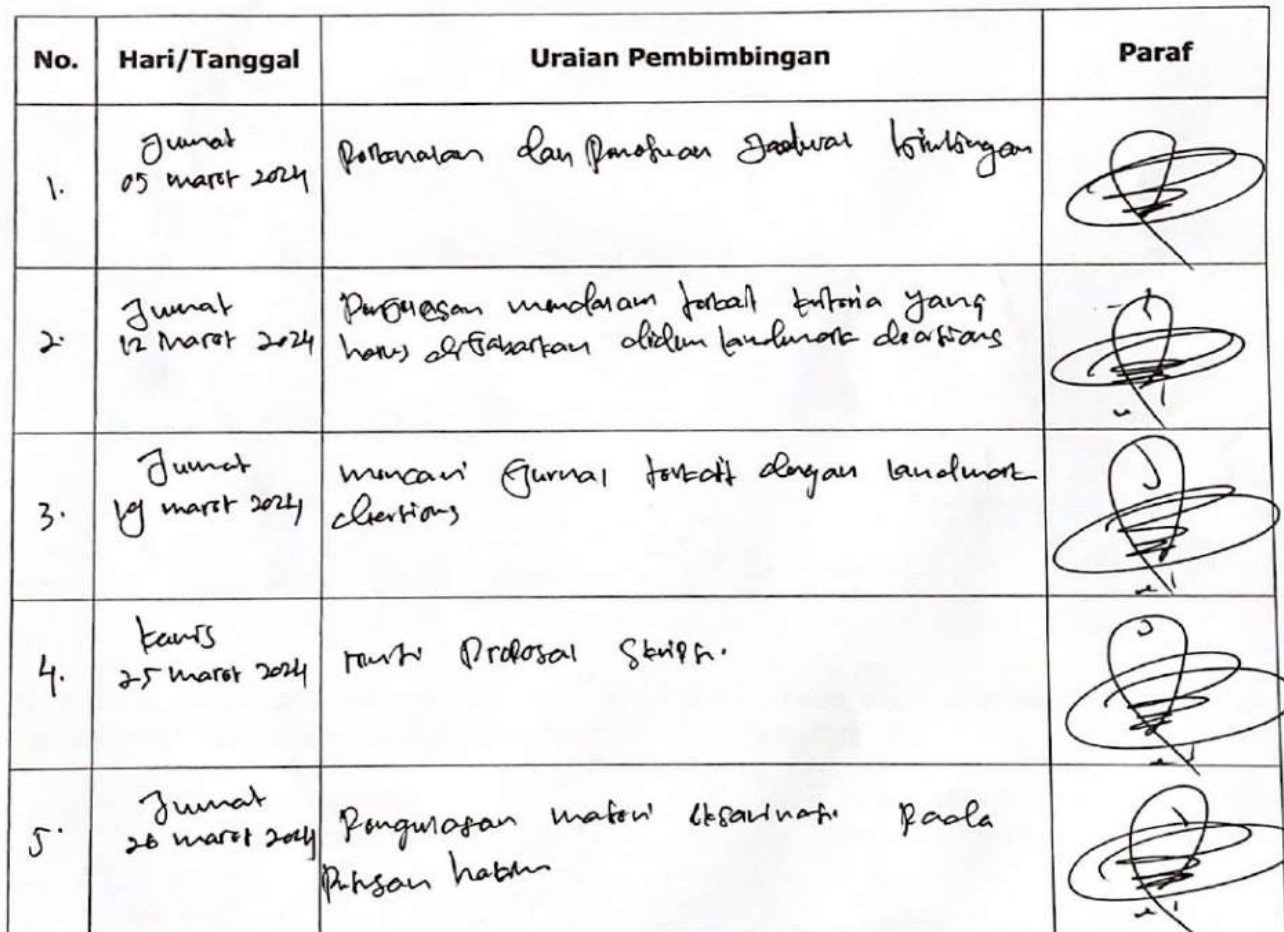 No. Hari/Tanggal Uraian Pembimbingan Paraf
1. Jumat
05 maret 2024
Perkenalan dan Penentuan Jadwal bimbingan
2. Jumat
12 maret 2024
mendalam terkait kriteria yang
harus dijabarkan landmark decisions
3. Jumat
19 maret 2024
mencari Jurnal terkait dengan landmark
decisions
4. kamis
25 maret 2024
revisi Proposal Skripsi.
5. Jumat
26 maret 2024
Pengulasan materi eksaminasi Pada
Putusan hakim